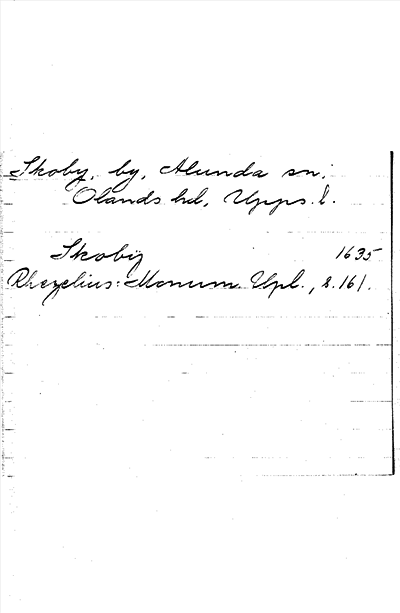 Skoby, by, Alunda sn,
Olands hd, Upps. l.
Skobÿ 1635
Rhezelius: Monum. Upl., s. 161.